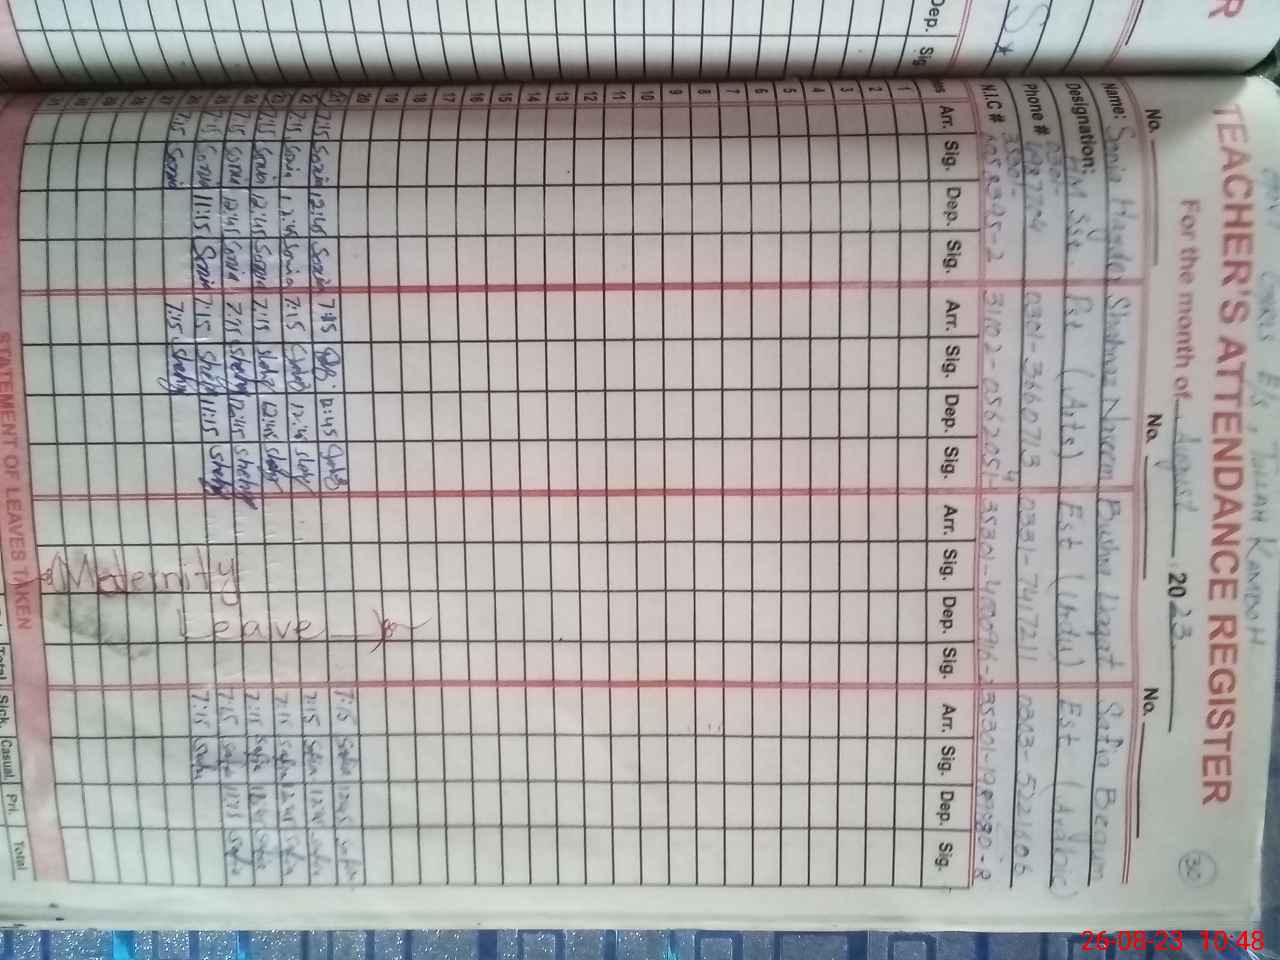 Govt GIRLS E/S, TULLAH KAMBOH
TEACHER'S ATTENDANCE REGISTER
30
For the month of August 2023
No. No. No.
Name: Sonia Hayder Shahnaz Naseem Bushra Liaqat Safia Begum
Designation: HM SST. Pst (Arts) Est (Urdu) Est (Arabic)
Phone # 0301-3660713 0331-7417211 0303-5221606
N.I.C #
Arr. Sig. Dep. Sig. Arr. Sig. Dep. Sig. Arr. Sig. Dep. Sig. Arr. Sig. Dep. Sig.
1
2
3
4
5
6
7
8
9
10
11
12
13
14
15
16
17
18
19
20
21 7:15 Sonia 12:45 Sonia 7:15 12:45 7:15 Safia 12:45 Safia
22 7:15 Sonia 12:45 Sonia 7:15 12:45 7:15 Safia 12:45 Safia
23 7:15 Sonia 12:45 Sonia 7:15 12:45 7:15 Safia 12:45 Safia
24 7:15 Sonia 12:45 Sonia 7:15 12:45 7:15 Safia 12:45 Safia
25 7:15 Sonia 11:15 Sonia 7:15 11:15 7:15 Safia 11:15 Safia
26 7:15 Sonia 7:15 7:15 Safia
27
28
29
30
31
Maternity
Leave
STATEMENT OF LEAVES TAKEN
Total Sick. Casual. Pri. Total
Dep. Sig
26-08-23 10:48